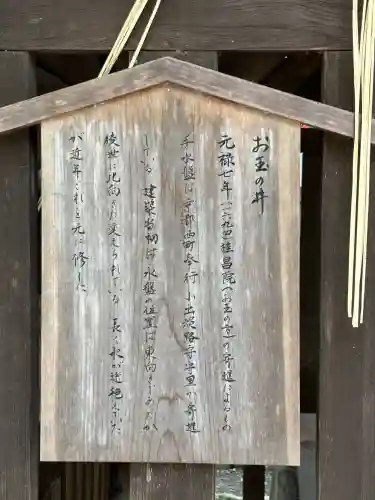 お玉の井
元禄七年(一六九四)桂昌院(お玉の方)の寄進によるもの
手水盤は京都西町奉行小出淡路守守里の寄進
している 建築当初は水盤の位置は東向きであったが
後世に北向きに変えられている 長く水が途絶えていた
が近年これを元に修した